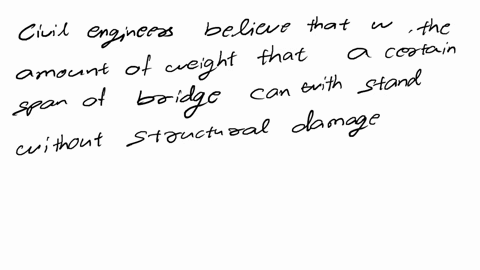 Civil engineers believe that w, the
amount of weight that a certain
span of bridge can with stand
without structural damage